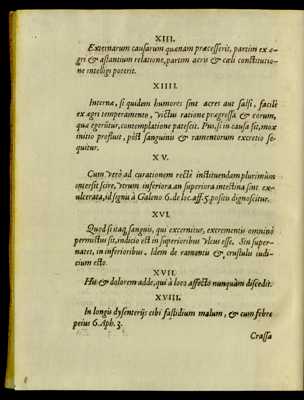 XIII.
Externarum causarum quænam præcesserit, partim ex æ-
gri & astantium relatione, partim aeris & cæli constitutio-
ne intelligi poterit.
XIIII.
Interna, si quidem humores sint acres aut salsi, facilè
ex ægri temperamento, victus ratione prægressa & eorum,
quæ egerūtur, contemplatione patescit. Pus, si in causa sit, mox
initio profluit, pòst sanguinis & ramentorum excretio se-
quitur.
XV.
Cum verò ad curationem rectè instituendam plurimùm
intersit scire, vtrum inferiora an superiora intestina sint ex-
ulcerata, id signū à Galeno 6. de loc. aff. 5. positū dignoscitur.
XVI.
Quod si itaq; sanguis, qui excernitur, excrementis omninò
permixtus sit, indicio est in superioribus vlcus esse. Sin super-
natet, in inferioribus. Idem de ramentis & crustulis iudi-
cium esto.
XVII.
Huc & dolorem adde, qui à loco affecto nunquàm discedit.
XVIII.
In longis dysenterijs cibi fastidium malum, & cum febre
peius 6. Aph. 3.
Crassa